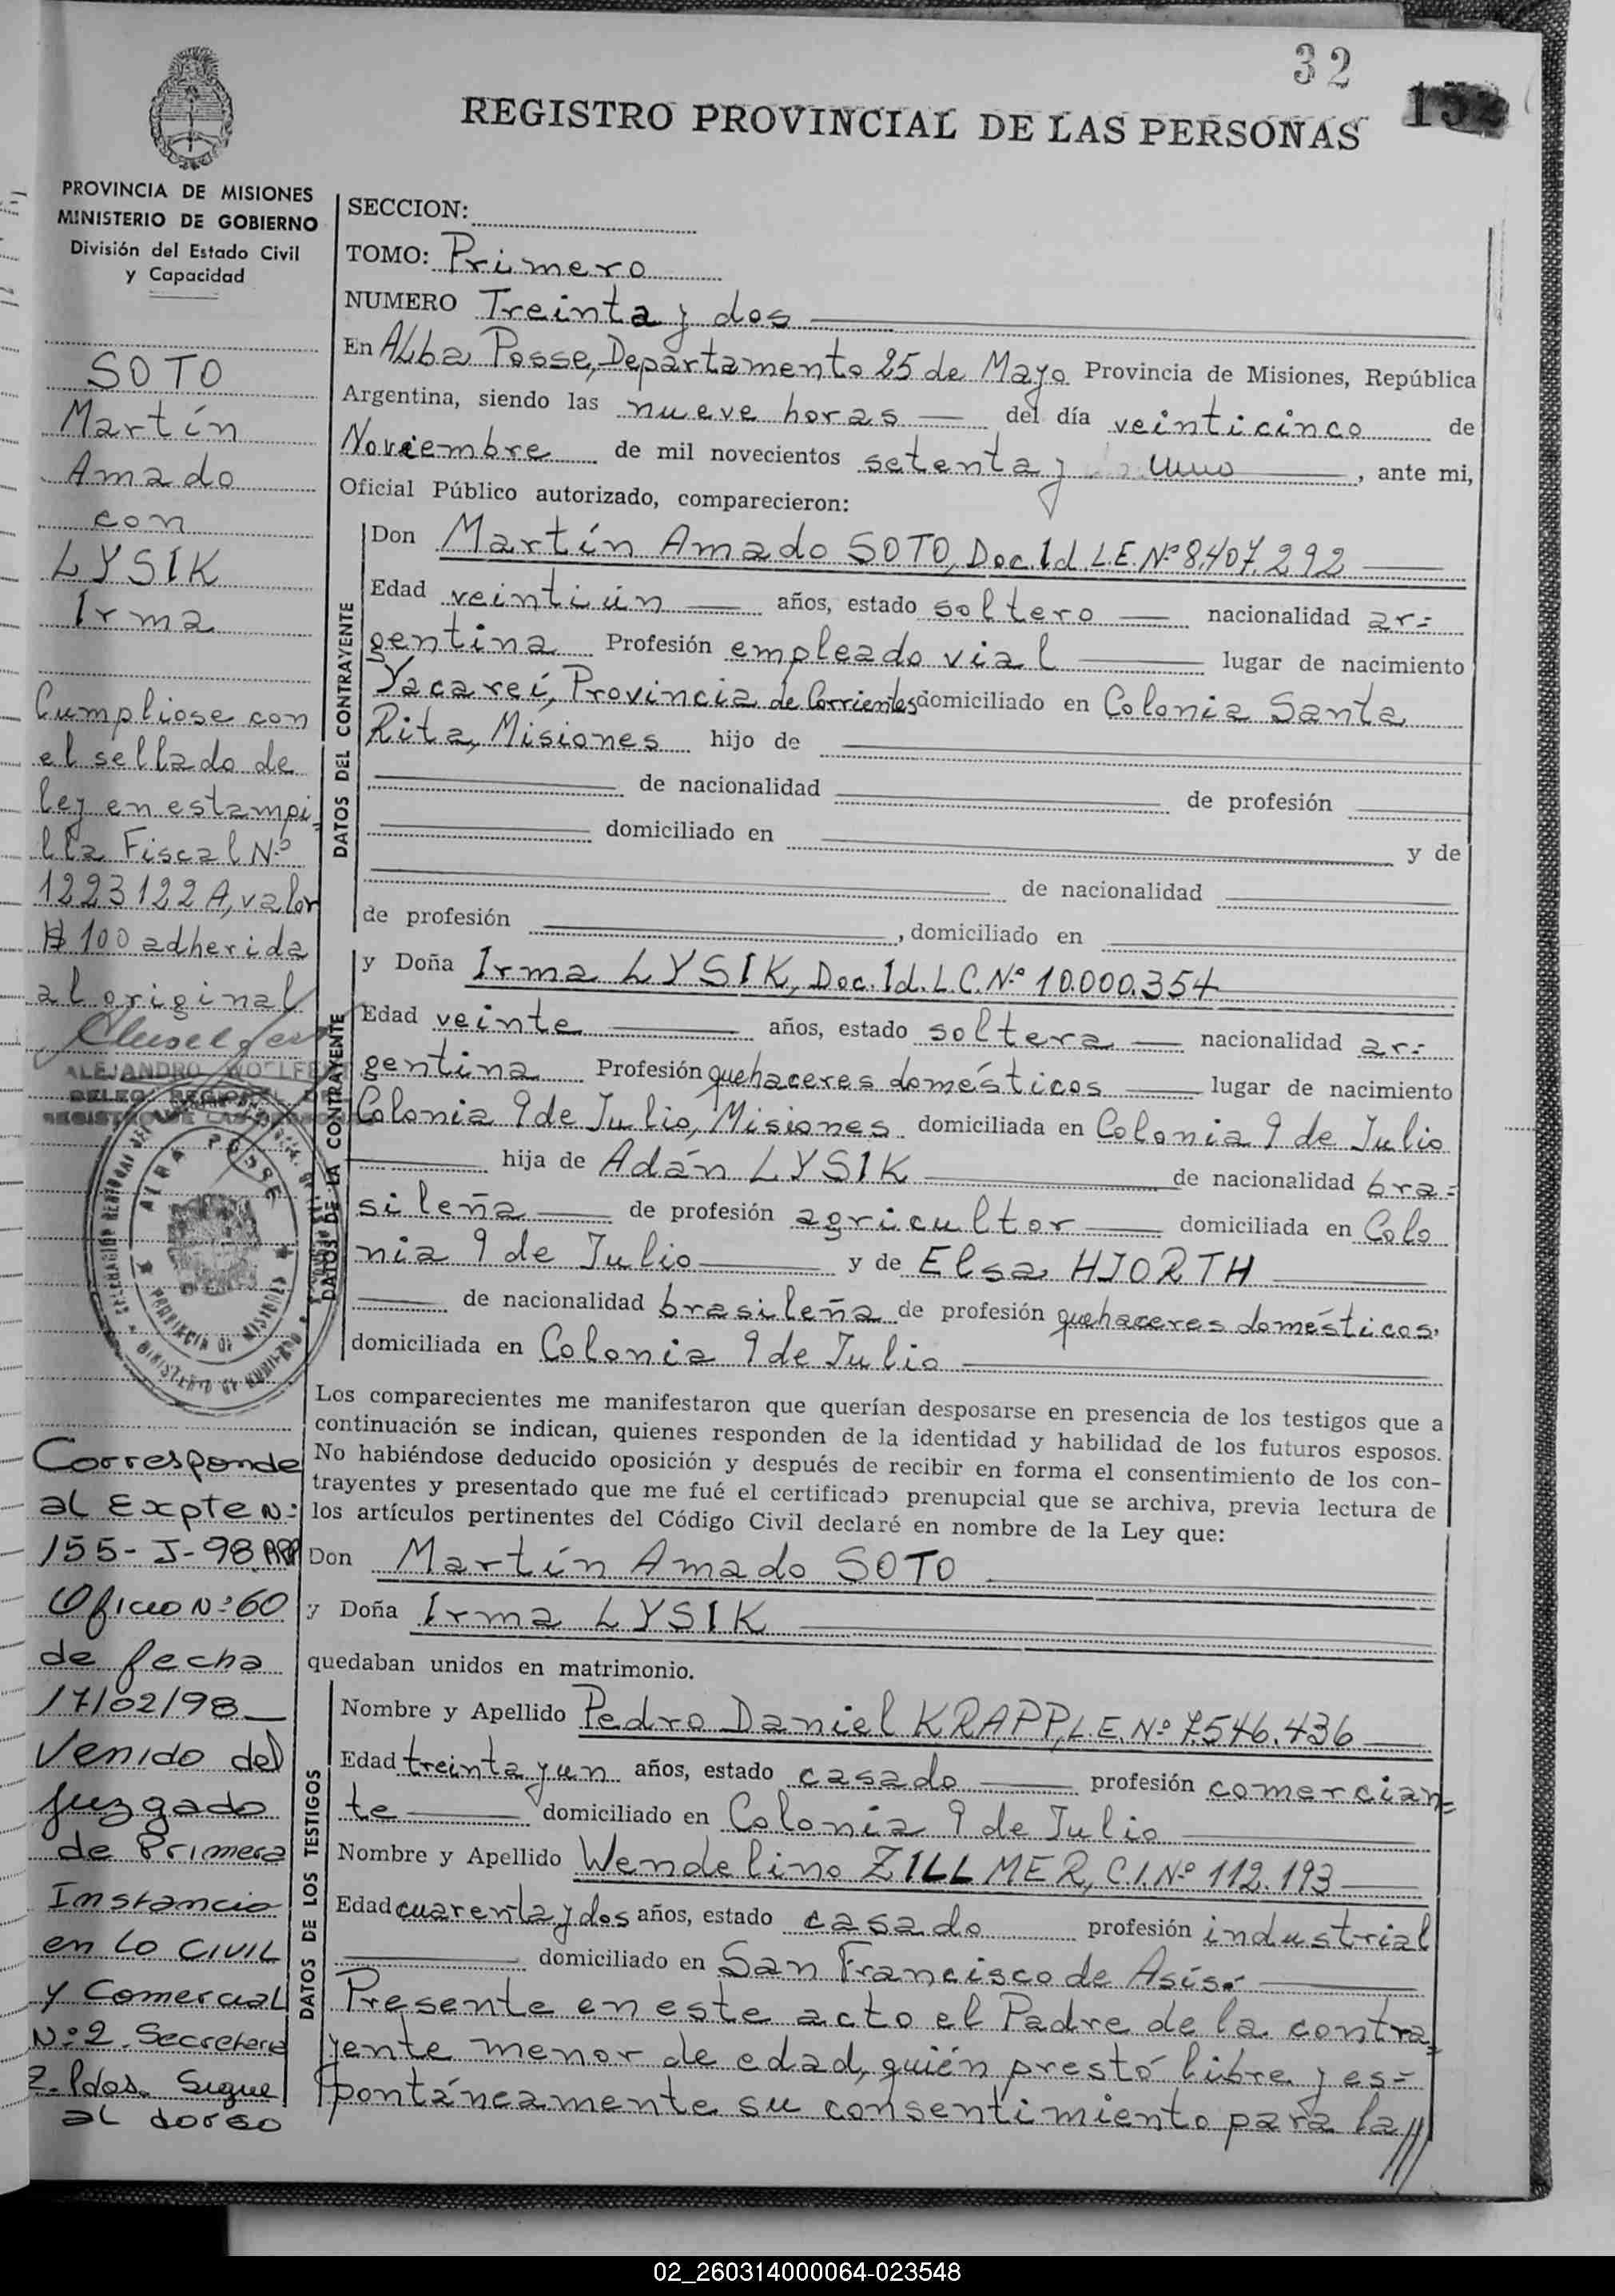 32
152
REGISTRO PROVINCIAL DE LAS PERSONAS
PROVINCIA DE MISIONES
MINISTERIO DE GOBIERNO
División del Estado Civil
y Capacidad
SOTO
Martín
Amado
con
LYSIK
Irma
Cumpliose con
el sellado de
ley en estampi=
lla Fiscal Nº
1223122 A, valor
$ 100 adherida
al original
ALEJANDRO
ALBA POSSE
PROVINCIA DE MISIONES
MINISTERIO DE GOBIERNO
Corresponde
al Expte Nº
155-J-98
Oficio Nº 60
de fecha
17/02/98
Venido del
Juzgado
de Primera
Instancia
en lo Civil
y Comercial
Nº 2. Secretaria
Sigue
al dorso
SECCION:
TOMO: Primero
NUMERO Treinta y dos
En Alba Posse, Departamento 25 de Mayo Provincia de Misiones, República
Argentina, siendo las nueve horas del día veinticinco de
Noviembre de mil novecientos setenta y uno, ante mi,
Oficial Público autorizado, comparecieron:
DATOS DEL CONTRAYENTE
Don Martín Amado SOTO, Doc. Id. L.E. Nº 8.407.292
Edad veintiún años, estado soltero nacionalidad ar=
gentina Profesión empleado vial lugar de nacimiento
Yacareí, Provincia de Corrientes domiciliado en Colonia Santa
Rita, Misiones hijo de
de nacionalidad de profesión
domiciliado en y de
de nacionalidad
de profesión , domiciliado en
DATOS DE LA CONTRAYENTE
y Doña Irma LYSIK, Doc. Id. L.C. Nº 10.000.354
Edad veinte años, estado soltera nacionalidad ar=
gentina Profesión quehaceres domésticos lugar de nacimiento
Colonia 9 de Julio, Misiones domiciliada en Colonia 9 de Julio
hija de Adán LYSIK de nacionalidad bra=
sileña de profesión agricultor domiciliada en Colo
nia 9 de Julio y de Elsa HJORTH
de nacionalidad brasileña de profesión quehaceres domésticos,
domiciliada en Colonia 9 de Julio
Los comparecientes me manifestaron que querían desposarse en presencia de los testigos que a
continuación se indican, quienes responden de la identidad y habilidad de los futuros esposos.
No habiéndose deducido oposición y después de recibir en forma el consentimiento de los con-
trayentes y presentado que me fué el certificado prenupcial que se archiva, previa lectura de
los artículos pertinentes del Código Civil declaré en nombre de la Ley que:
Don Martín Amado SOTO
y Doña Irma LYSIK
quedaban unidos en matrimonio.
DATOS DE LOS TESTIGOS
Nombre y Apellido Pedro Daniel KRAPP, L.E. Nº 7.546.436
Edad treinta y un años, estado casado profesión comercian=
te domiciliado en Colonia 9 de Julio
Nombre y Apellido Wendelino ZILLMER, C.I. Nº 112.193
Edad cuarenta y dos años, estado casado profesión industrial
domiciliado en San Francisco de Asís.
Presente en este acto el Padre de la contra=
yente menor de edad, quién prestó libre y es=
pontáneamente su consentimiento para la///
02_260314000064-023548